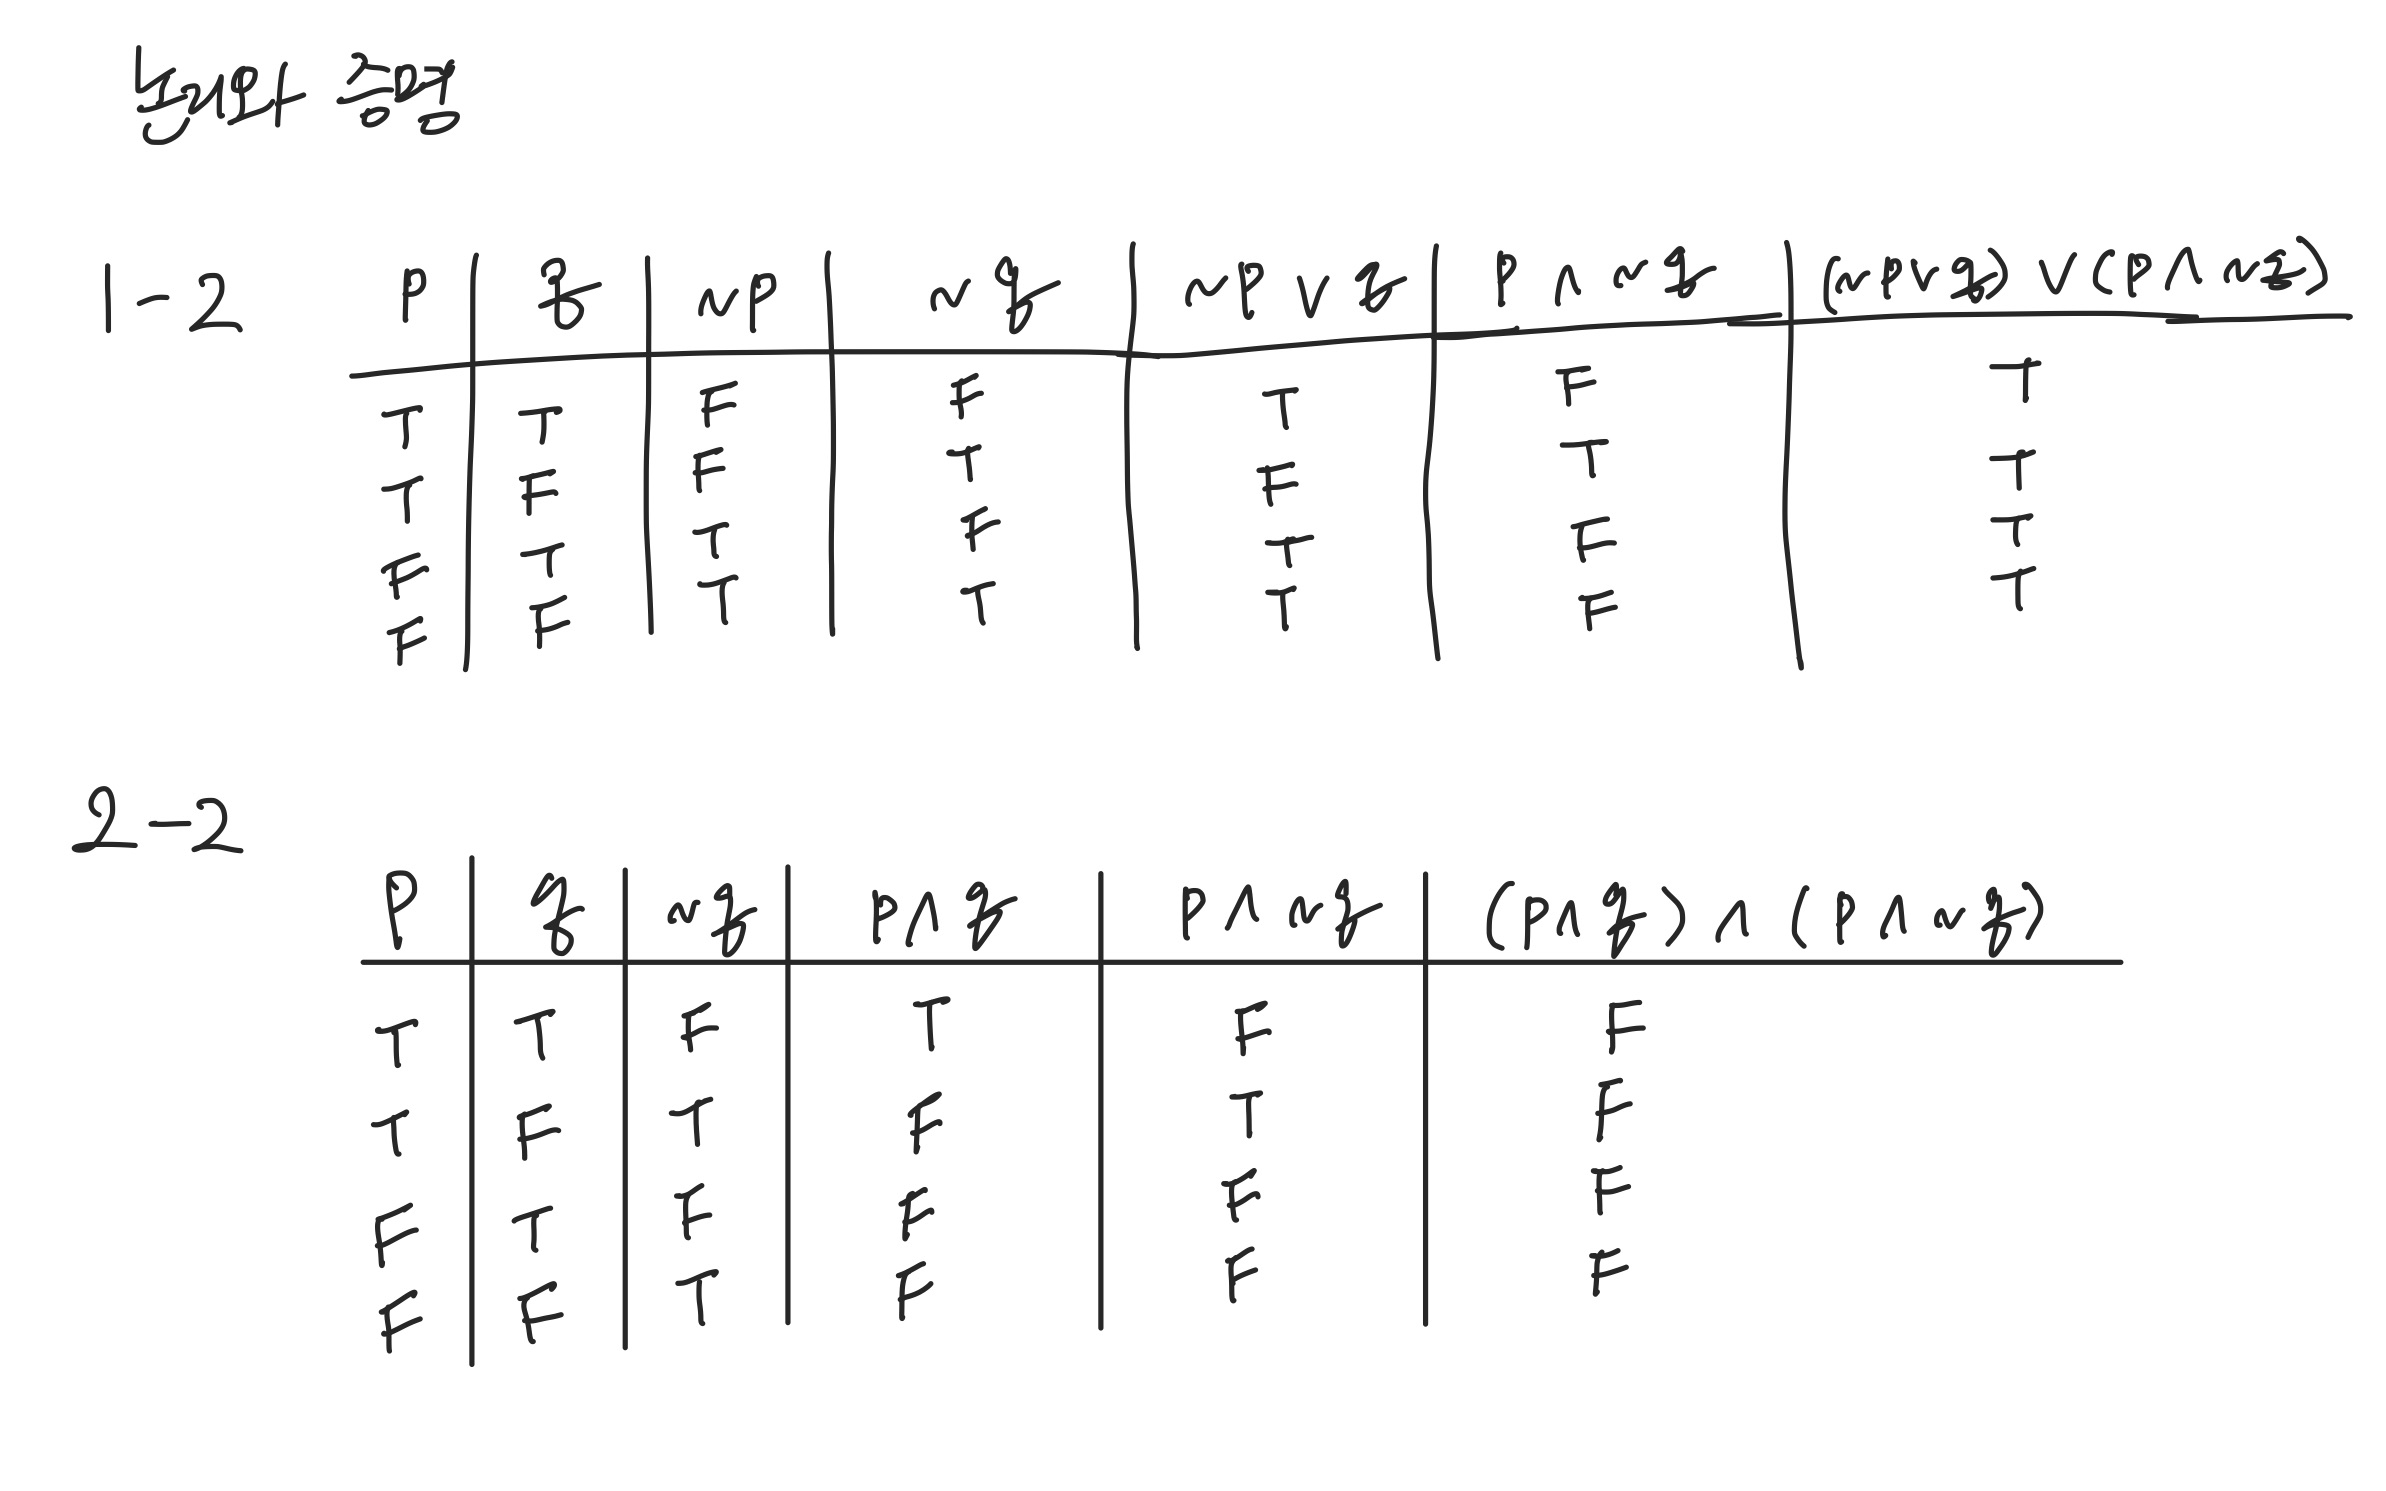 논리와 증명
1-2 P q ~p ~q ~p ∨ q P ∧ ~q (~p∨q) ∨ (P ∧ ~q)
T T F F T F T
T F F T F T T
F T T F T F T
F F T T T F T
2-2
P q ~q P∧q P∧ ~q (P∧q) ∧ (P∧~q)
T T F T F F
T F T F T F
F T F F F F
F F T F F F